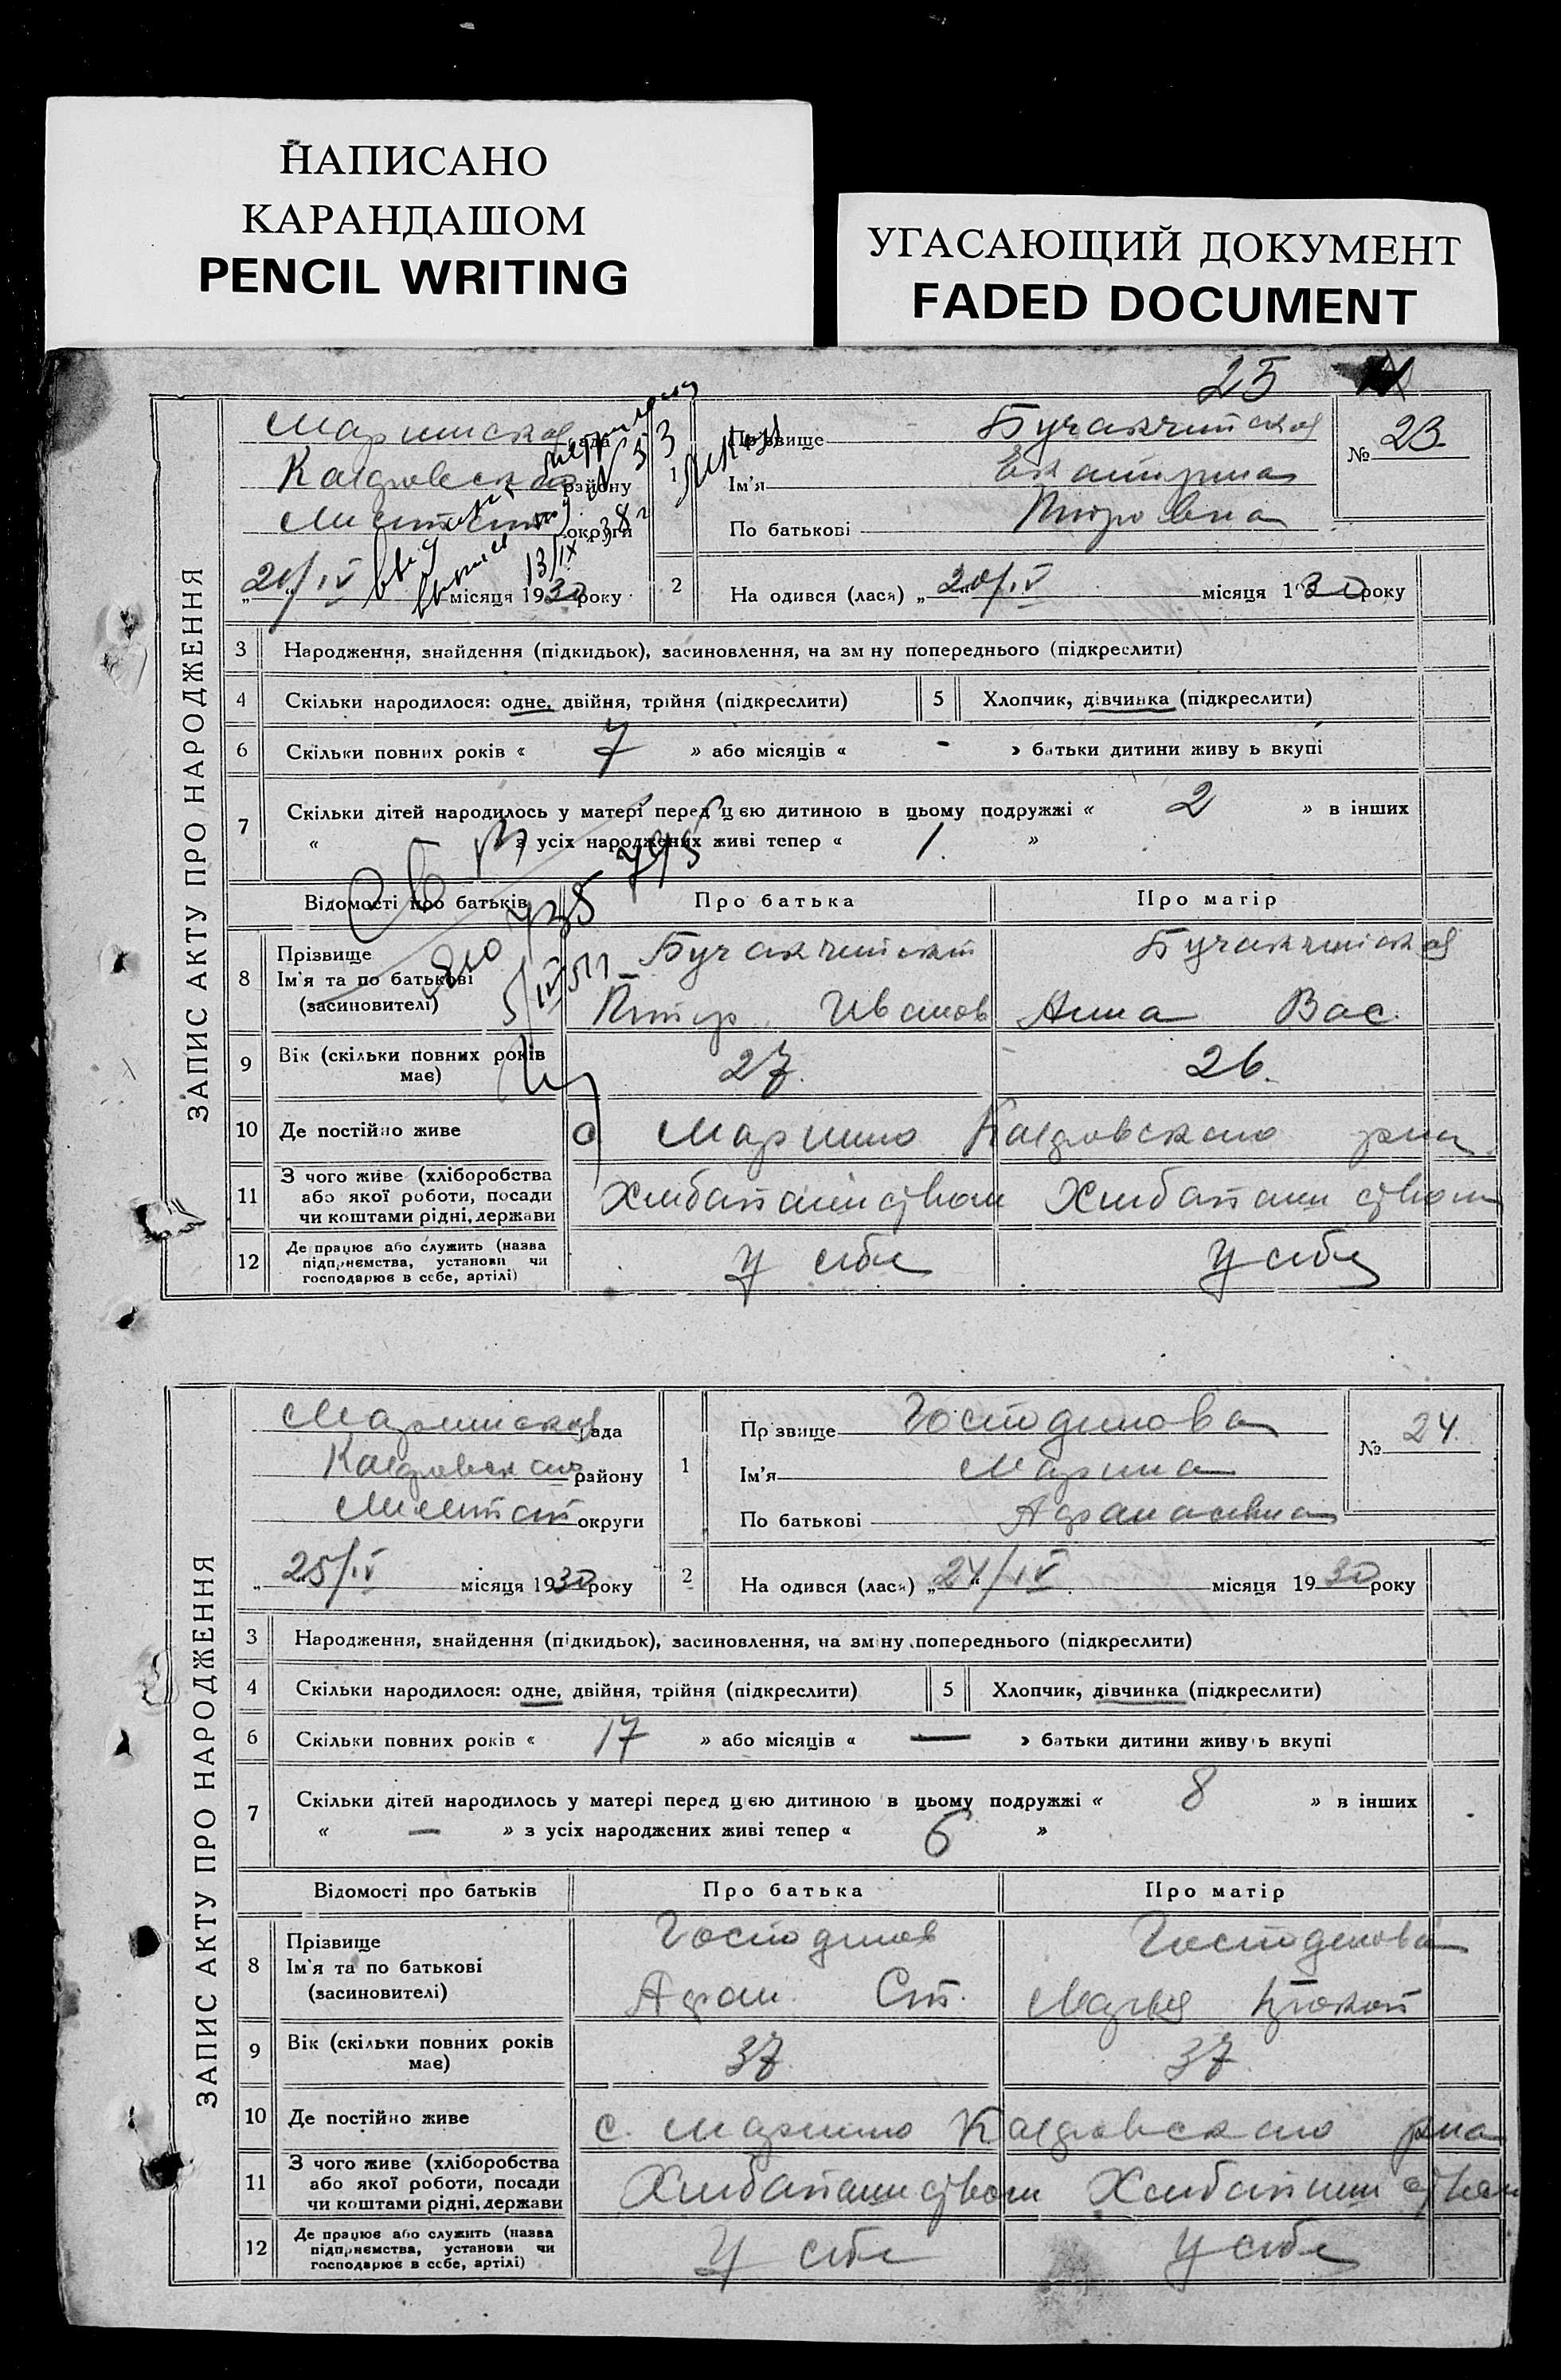 НАПИСАНО
КАРАНДАШОМ
PENCIL WRITING
УГАСАЮЩИЙ ДОКУМЕНТ
FADED DOCUMENT
25
ЗАПИС АКТУ ПРО НАРОДЖЕННЯ
рада
району
округи
21/IV місяця 1930 року
13/IX 38 г
N 53
1
Прізвище
Ім'я Екатирина
По батькові Питровна
№ 23
2 На одився (лася) „20/IV місяця 1930 року
3 Народження, знайдення (підкидьок), засиновлення, на зм ну попереднього (підкреслити)
4 Скільки народилося: одне, двійня, трійня (підкреслити)
5 Хлопчик, дівчинка (підкреслити)
6 Скільки повних років « 7 » або місяців « - » батьки дитини живу ь вкупі
7 Скільки дітей народилось у матері перед цею дитиною в цьому подружжі « 2 » в інших
« з усіх народжених живі тепер « 1. »
Відомості про батьків Про батька Про матір
8 Прізвище
Ім'я та по батькові Питир Иванов Анна Вас.
(засиновителі)
9 Вік (скільки повних років має) 27. 26.
10 Де постійно живе с Марино района
11 З чого живе (хліборобства
або якої роботи, посади
чи коштами рідні, держави
Хлибопашиством Хлибопашиством
12 Де працює або служить (назва
підприємства, установи чи
господарює в себе, артілі)
У сибе У сибе
ЗАПИС АКТУ ПРО НАРОДЖЕННЯ
рада
району
округи
„25/IV місяця 1930 року
1
Пр звище Господинова
Ім'я Марина
По батькові Афанасивна
№ 24.
2 На одився (лася) „24/IV місяця 1930 року
3 Народження, знайдення (підкидьок), засиновлення, на зміну попереднього (підкреслити)
4 Скільки народилося: одне, двійня, трійня (підкреслити)
5 Хлопчик, дівчинка (підкреслити)
6 Скільки повних років « 17 » або місяців « — » батьки дитини живуть вкупі
7 Скільки дітей народилось у матері перед цією дитиною в цьому подружжі « 8 » в інших
« — » з усіх народжених живі тепер « 6 »
Відомості про батьків Про батька Про матір
8 Прізвище Господинов Господинова
Ім'я та по батькові Афан. Ст. Марья Прокоп
(засиновителі)
9 Вік (скільки повних років має) 37. 37.
10 Де постійно живе с. Марино рна
11 З чого живе (хліборобства
або якої роботи, посади
чи коштами рідні, держави
Хлибопашиством Хлибопашиством
12 Де працює або служить (назва
підприємства, установи чи
господарює в себе, артілі)
У сибе У сибе